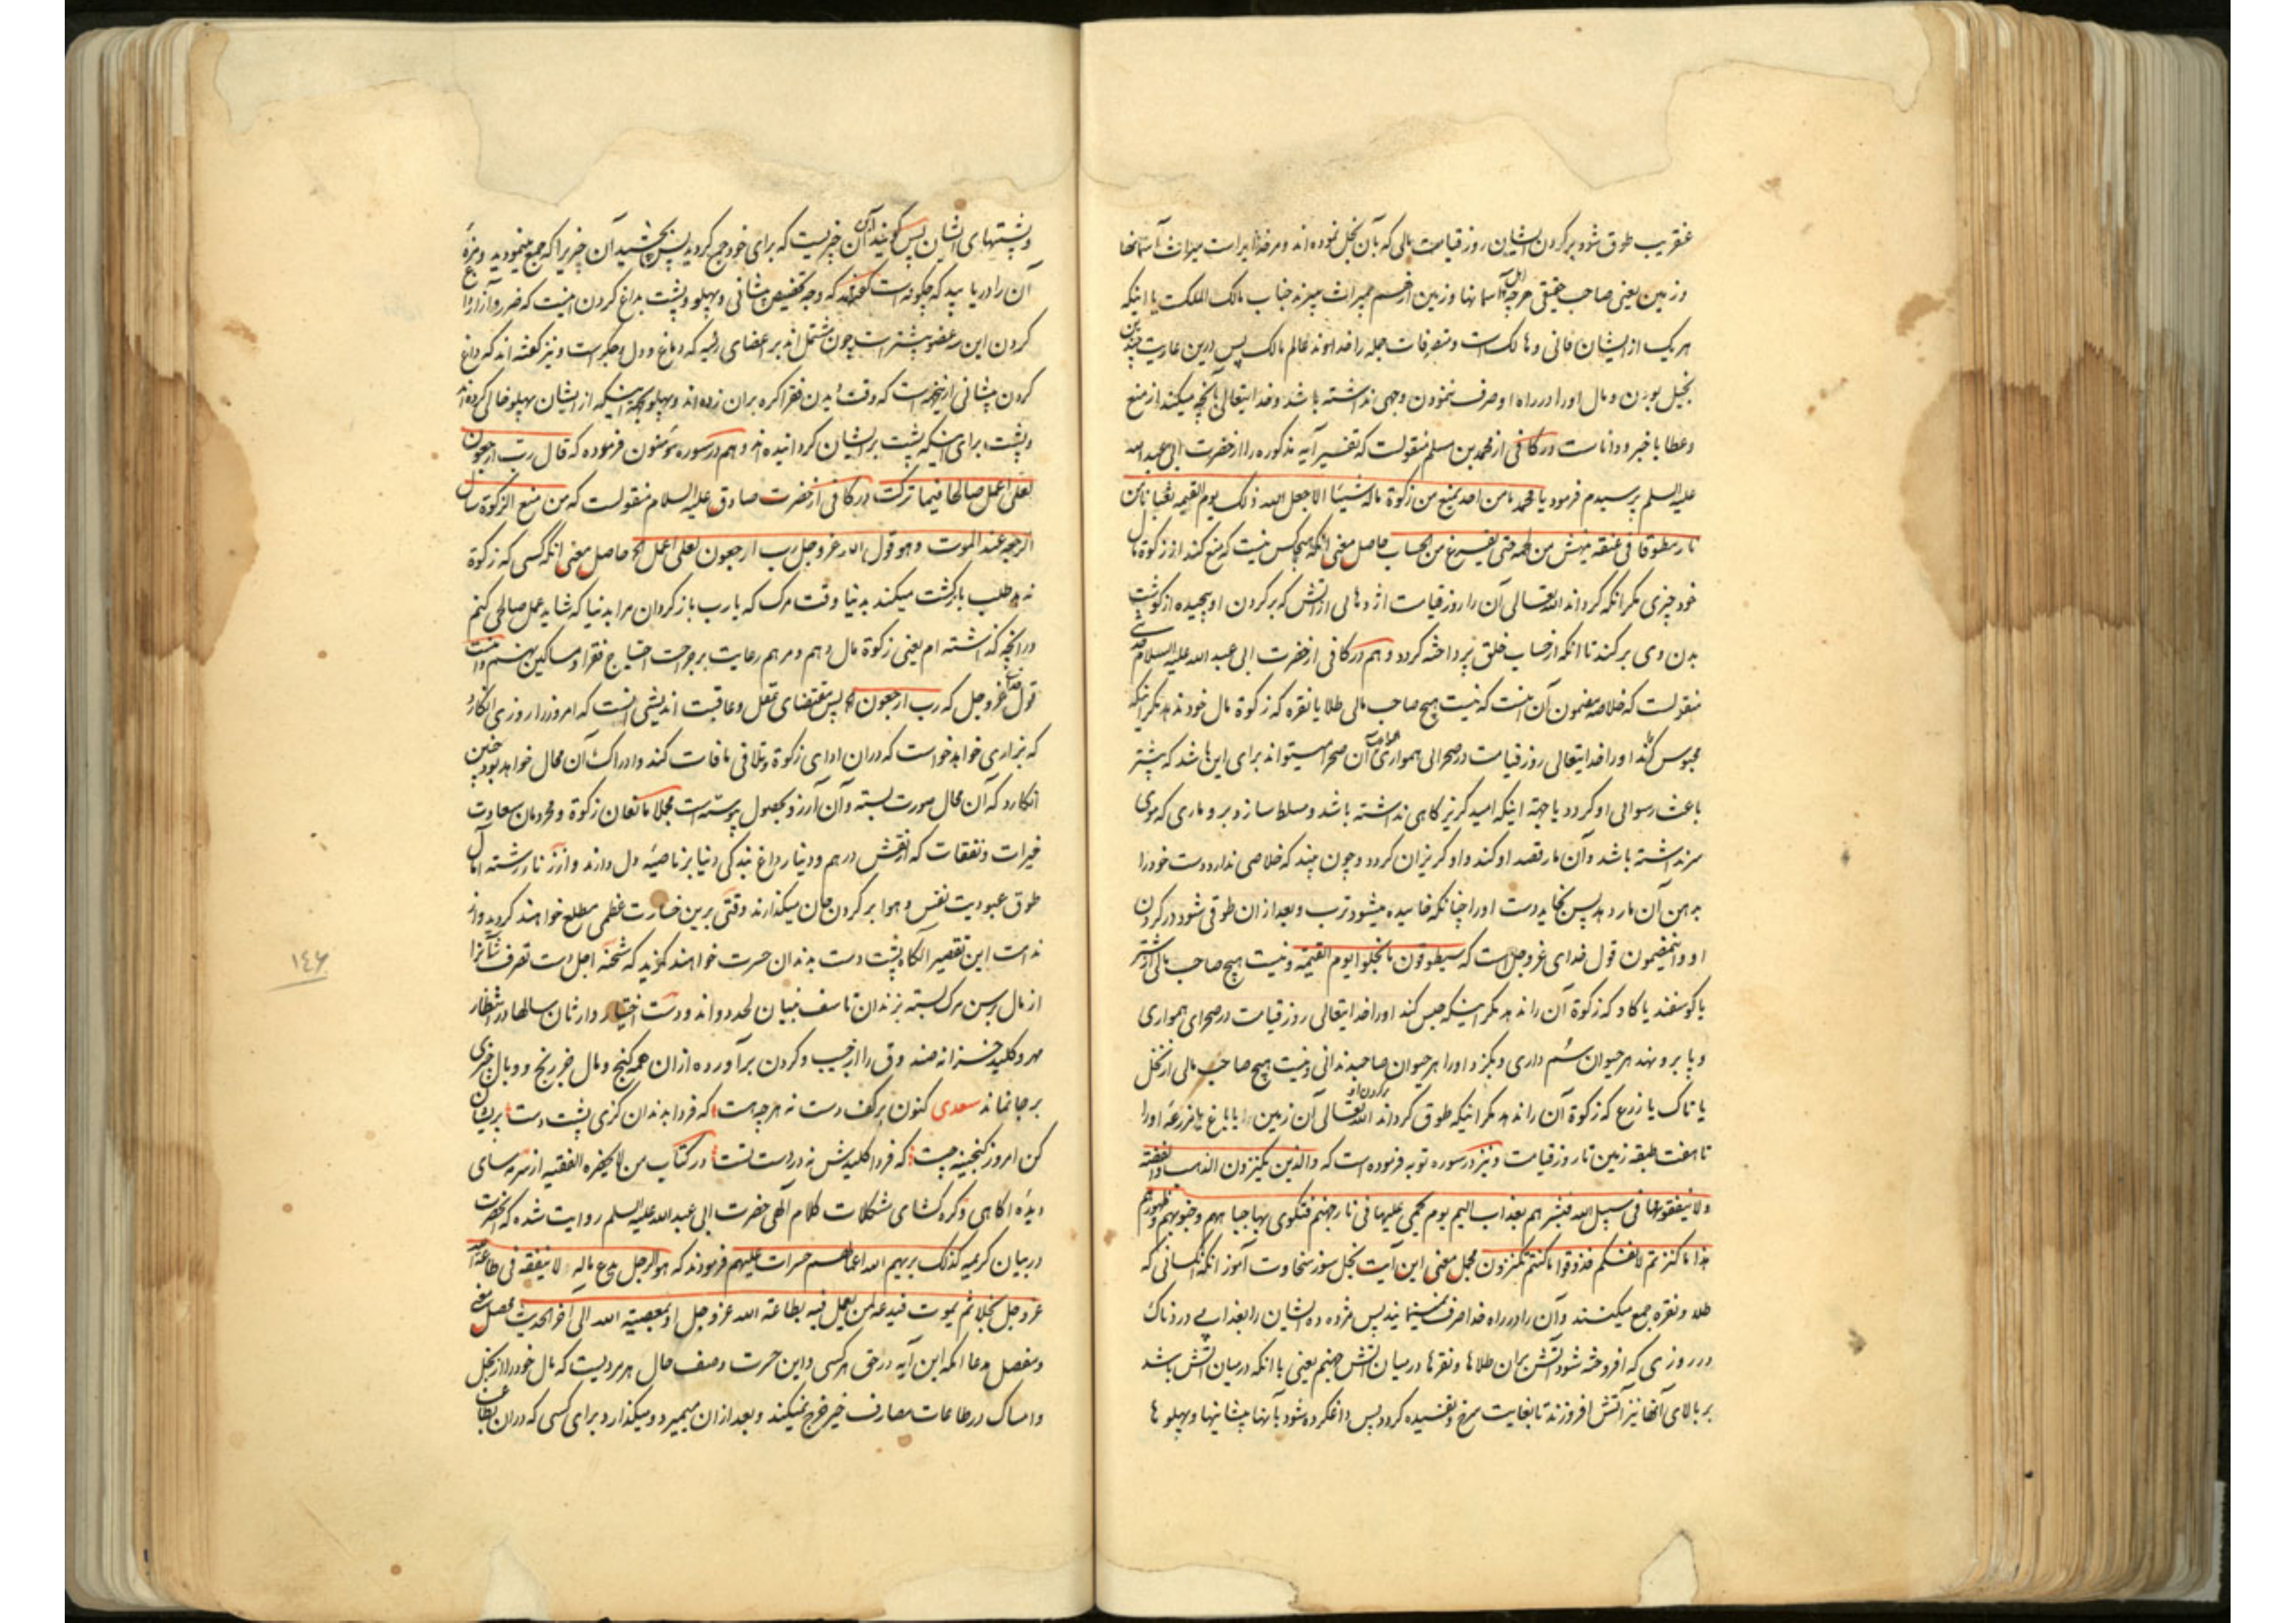 عنقریب طوق شود بر گردن ایشان روز قیامت مالی که بآن بخل نموده‌اند و مر خدا راست میراث آسمانها
و زمین یعنی صاحب حقیقی هرچه اهل آسمانها و زمین از هم میراث میبرند جناب مالک الملکست یا اینکه
هر یک از ایشان فانی و هالکست و متصرفات جمله را خداوند عالم مالک پس درین عاریت چندین
بخیل بودن و مال او را در راه او صرف ننمودن وجهی نداشته باشد و خدایتعالی بآنچه میکنند از منع
و عطا با خبر و داناست در کافی از محمد بن مسلم منقولست که تفسیر آیه مذکوره را از حضرت ابی عبد الله
علیه السلم پرسیدم فرمود یا محمد ما من احد یمنع من زکوة ماله شیئا الا جعل الله ذلک یوم القیمه ثعبانا من
نار مطوقا فی عنقه ینهش من لحمه حتی یفرغ من الحساب حاصل معنی آنکه هیچکس نیست که منع کند از زکوة مال
خود چیزی مگر آنکه گرداند الله تعالی آن را روز قیامت اژدهایی از آتش که بر گردن او پیچیده از گوشت
بدن وی بر کند تا آنکه از حساب خلق پرداخته گردد و هم در کافی از حضرت ابی عبد الله علیه السلام حدیثی
منقولست که خلاصه مضمون آن اینست که نیست هیچ صاحب مالی طلا یا نقره که زکوة مال خود ندهد مگر اینکه
محبوس کند او را خدایتعالی روز قیامت در صحرایی هموار که همواری آن صحرا میتواند برای این باشد که بیشتر
باعث رسوایی او گردد یا جهة اینکه امید گریزگاهی نداشته باشد و مسلط سازد برو ماری که موی
سر نداشته باشد و آن مار قصد او کند و او گریزان گردد و چون بیند که خلاصی ندارد دست خود را
بدهن آن مار دهد پس بخاید دست او را چنانکه خاییده میشود ترب و بعد از آن طوقی شود در گردن
او و اینمضمون قول خدای عز و جل است که سیطوقون ما بخلوا یوم القیمه و نیست هیچ صاحب مالی از شتر
یا گوسفند یا گاو که زکوة آن را ندهد مگر اینکه حبس کند او را خدایتعالی روز قیامت در صحرای همواری
و پا برو نهد هر حیوان سُم داری و بگزد او را هر حیوان صاحبدندانی و نیست هیچ صاحب مالی از نخل
یا تاک یا زرع که زکوة آن را ندهد مگر اینکه طوق گرداند الله تعالی بر گردن او آن زمین یا باغ یا مزرعه او را
تا هفت طبقه زمین تا روز قیامت و نیز در سوره توبه فرموده است که والذین یکنزون الذهب والفضة
ولا ینفقونها فی سبیل الله فبشرهم بعذاب الیم یوم یحمی علیها فی نار جهنم فتکوی بها جباههم و جنوبهم و ظهورهم
هذا ما کنزتم لانفسکم فذوقوا ما کنتم تکنزون مجمل معنی این آیت بخل سوز سخاوت آموز آنکه کسانی که
طلا و نقره جمع میکنند و آن را در راه خدا صرف نمینمایند پس مژده ده ایشان را بعذابی دردناک
در روزی که افروخته شود آتش بران طلاها و نقرها در میان آتش جهنم یعنی با آنکه در میان آتش باشد
بر بالای آنها نیز آتش افروزند تا بغایت سرخ و تفسیده گردد پس داغکرده شود بآنها پیشانیها و پهلوها
و پشتهای ایشان پس گویند این آن چیزیست که برای خود جمع کردید پس بچشید آن چیزی را که جمع مینمودید و مزهٔ
آن را دریابید که چگونه است گفته‌اند که وجه تخصیص پیشانی و پهلو و پشت بداغ کردن اینست که ضرر و آزار داغ
کردن این سه عضو بیشتر است چون مشتمل‌اند بر اعضای رئیسه که دماغ و دل و جگر است و نیز گفته‌اند که داغ
کردن پیشانی از اینجهة است که وقت دیدن فقرا گره بران زده‌اند و پهلو بجهة اینکه از ایشان پهلو خالی کرده‌اند
و پشت برای اینکه پشت بر ایشان گردانیده‌اند و هم در سوره مؤمنون فرموده که قال رب ارجعون
لعلی اعمل صالحا فیما ترکت در کافی از حضرت صادق علیه السلام منقولست که من منع الزکوة سال
الرجعه عند الموت و هو قول الله عز و جل رب ارجعون لعلی اعمل الخ حاصل معنی آنکه کسی که زکوة
ندهد طلب بازگشت میکند بدنیا وقت مرگ که یا رب باز گردان مرا بدنیا که شاید عمل صالحی کنم
در آنچه گذاشته‌ام یعنی زکوة مال دهم و مرهم رعایت بر جراحت احتیاج فقرا و مساکین نهم و اینست
قول خدای عز و جل که رب ارجعون الخ پس مقتضای عقل و عاقبت اندیشی آنست که امروز را روزی انگارد
که بزاری خواهد خواست که دران ادای زکوة و تلافی مافات کند و ادراک آن محال خواهد بود چنین
انگارد که آن محال صورت بسته و آن آرزو بحصول پیوسته است مجملا مانعان زکوة و محرومان سعادت
خیرات و نفقات که از نقش درهم و دینار داغ بندگی دنیا بر ناصیهٔ دل دارند و از تار رشته آمال
طوق عبودیت نفس و هوا بر گردن جان میگذارند وقتی برین خسارت عظمی مطلع خواهند گردید و از
ندامت این تقصیر آنگاه پشت دست بدندان حسرت خواهند گزید که شحنه اجل دست تصرف شانرا
از مال برسن مرگ بسته بزندان تاسف نمیان لحد دواند و دست اختیار وارثان سالها در انتظار
مهر و کلید خزانه صندوق را از جیب و گردن برآورده ازان همه گنج و مال جز رنج و وبال چیزی
بر جا نماند سعدی کنون بر کف دست نه هرچه هست که فردا بدندان گزی پشت دست پریشان
کن امروز گنجینه چست که فردا کلیدش نه در دست تست در کتاب من لا یحضره الفقیه از سرمه سای
دیدهٔ آگاهی و گره گشای مشکلات کلام الهی حضرت ابی عبد الله علیه السلم روایت شده که آنحضرت
در بیان کریمه کذلک یریهم الله اعمالهم حسرات علیهم فرمودند که هو الرجل یدع ماله لا ینفقه فی طاعة الله
عز و جل بخلا ثم یموت فیدعه لمن یعمل فیه بطاعة الله عز و جل او بمعصیة الله الی آخر الحدیث محصل معنی
و مفصل مدعا آنکه این آیه در حق هر کسی و این حسرت وصف حال هر مردیست که مال خود را از بخل
و امساک در طاعات مصارف خیر خرج نمیکند و بعد ازان میمیرد و میگذارد برای کسی که دران بطاعت
١٤٦